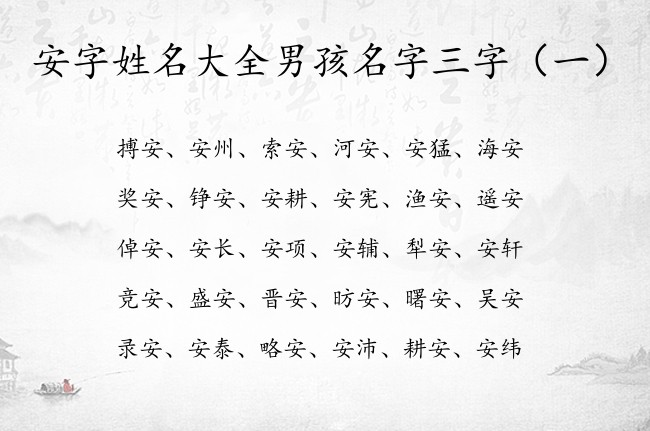 安字姓名大全男孩名字三字（一）
搏安、安州、索安、河安、安猛、海安
奖安、铮安、安耕、安宪、渔安、遥安
倬安、安长、安项、安辅、犁安、安轩
竞安、盛安、晋安、昉安、曙安、吴安
录安、安泰、略安、安沛、耕安、安纬